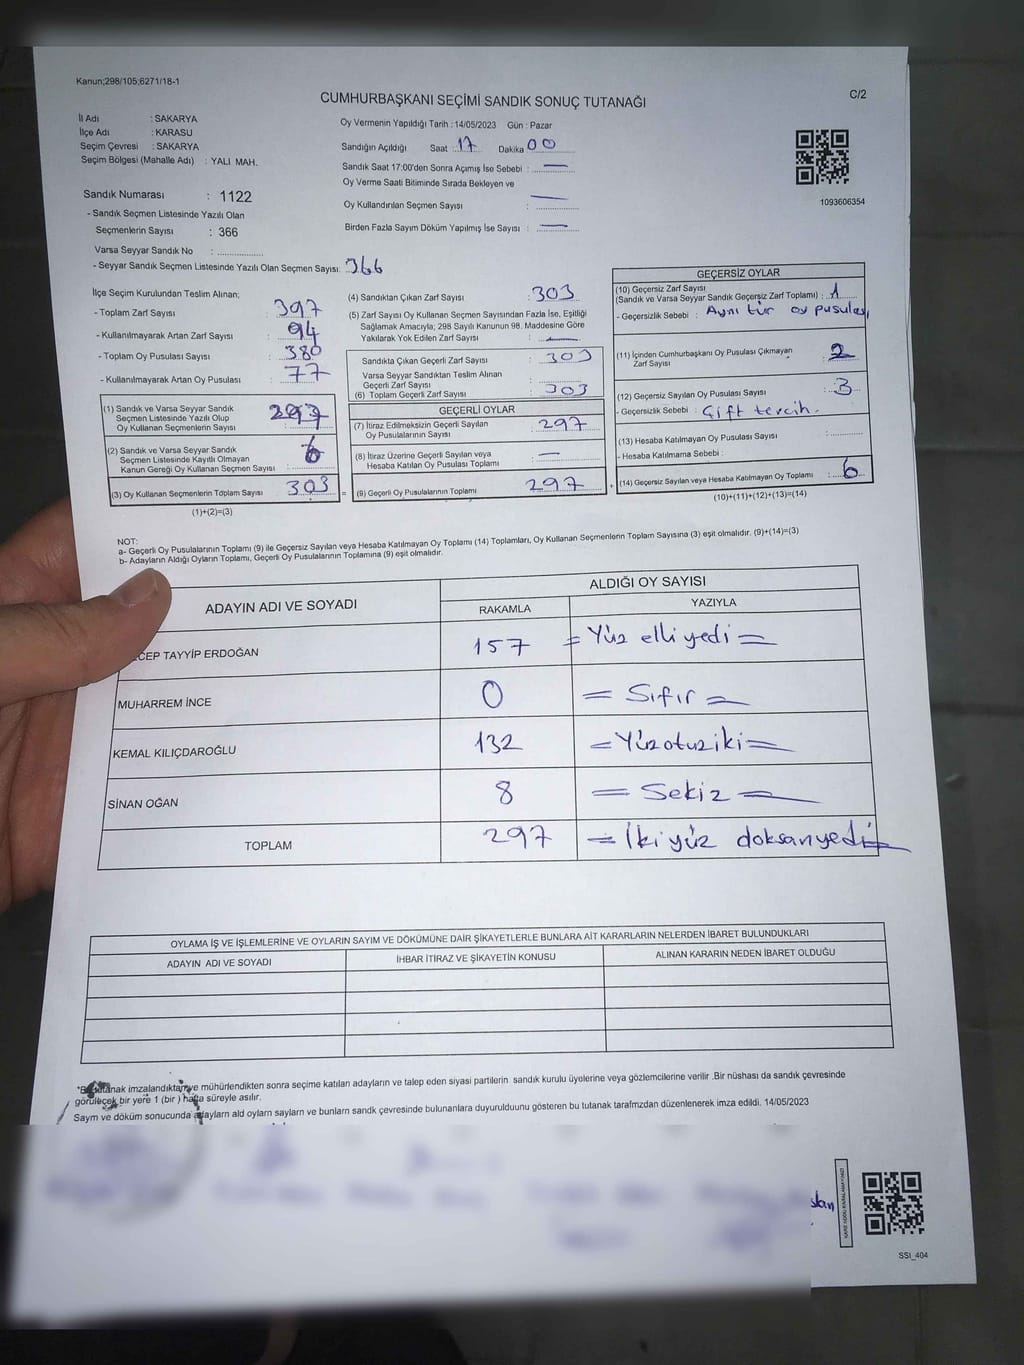 Kanun;298/105;6271/18-1
C/2
CUMHURBAŞKANI SEÇİMİ SANDIK SONUÇ TUTANAĞI
İl Adı : SAKARYA
İlçe Adı : KARASU
Seçim Çevresi : SAKARYA
Seçim Bölgesi (Mahalle Adı) : YALI MAH.
Sandık Numarası : 1122
- Sandık Seçmen Listesinde Yazılı Olan
Seçmenlerin Sayısı : 366
Varsa Seyyar Sandık No :
- Seyyar Sandık Seçmen Listesinde Yazılı Olan Seçmen Sayısı: 366
Oy Vermenin Yapıldığı Tarih : 14/05/2023 Gün : Pazar
Sandığın Açıldığı Saat 17 Dakika 00
Sandık Saat 17:00'den Sonra Açımış İse Sebebi : —
Oy Verme Saati Bitiminde Sırada Bekleyen ve
Oy Kullandırılan Seçmen Sayısı : —
Birden Fazla Sayım Döküm Yapılmış İse Sayısı : —
1093606354
İlçe Seçim Kurulundan Teslim Alınan;
- Toplam Zarf Sayısı : 397
- Kullanılmayarak Artan Zarf Sayısı : 94
- Toplam Oy Pusulası Sayısı : 380
- Kullanılmayarak Artan Oy Pusulası : 77
(1) Sandık ve Varsa Seyyar Sandık
Seçmen Listesinde Yazılı Olup
Oy Kullanan Seçmenlerin Sayısı : 297
(2) Sandık ve Varsa Seyyar Sandık
Seçmen Listesinde Kayıtlı Olmayan
Kanun Gereği Oy Kullanan Seçmen Sayısı : 6
(3) Oy Kullanan Seçmenlerin Toplam Sayısı : 303
(1)+(2)=(3)
(4) Sandıktan Çıkan Zarf Sayısı : 303
(5) Zarf Sayısı Oy Kullanan Seçmen Sayısından Fazla İse, Eşitliği
Sağlamak Amacıyla; 298 Sayılı Kanunun 98. Maddesine Göre
Yakılarak Yok Edilen Zarf Sayısı : —
Sandıkta Çıkan Geçerli Zarf Sayısı : 303
Varsa Seyyar Sandıktan Teslim Alınan
Geçerli Zarf Sayısı :
(6) Toplam Geçerli Zarf Sayısı : 303
GEÇERLİ OYLAR
(7) İtiraz Edilmeksizin Geçerli Sayılan
Oy Pusulalarının Sayısı : 297
(8) İtiraz Üzerine Geçerli Sayılan veya
Hesaba Katılan Oy Pusulası Toplamı : —
= (9) Geçerli Oy Pusulalarının Toplamı 297 +
GEÇERSİZ OYLAR
(10) Geçersiz Zarf Sayısı
(Sandık ve Varsa Seyyar Sandık Geçersiz Zarf Toplamı) : 1
- Geçersizlik Sebebi : Aynı tür oy pusulası
(11) İçinden Cumhurbaşkanı Oy Pusulası Çıkmayan
Zarf Sayısı : 2
(12) Geçersiz Sayılan Oy Pusulası Sayısı : 3
- Geçersizlik Sebebi : Çift tercih.
(13) Hesaba Katılmayan Oy Pusulası Sayısı :
- Hesaba Katılmama Sebebi :
(14) Geçersiz Sayılan veya Hesaba Katılmayan Oy Toplamı : 6
(10)+(11)+(12)+(13)=(14)
NOT:
a- Geçerli Oy Pusulalarının Toplamı (9) ile Geçersiz Sayılan veya Hesaba Katılmayan Oy Toplamı (14) Toplamları, Oy Kullanan Seçmenlerin Toplam Sayısına (3) eşit olmalıdır. (9)+(14)=(3)
b- Adayların Aldığı Oyların Toplamı, Geçerli Oy Pusulalarının Toplamına (9) eşit olmalıdır.
ADAYIN ADI VE SOYADI
ALDIĞI OY SAYISI
RAKAMLA YAZIYLA
CEP TAYYİP ERDOĞAN 157 = Yüz elli yedi =
MUHARREM İNCE 0 = Sıfır =
KEMAL KILIÇDAROĞLU 132 = Yüzotuziki =
SİNAN OĞAN 8 = Sekiz =
TOPLAM 297 = İki yüz doksanyedi =
OYLAMA İŞ VE İŞLEMLERİNE VE OYLARIN SAYIM VE DÖKÜMÜNE DAİR ŞİKAYETLERLE BUNLARA AİT KARARLARIN NELERDEN İBARET BULUNDUKLARI
ADAYIN ADI VE SOYADI İHBAR İTİRAZ VE ŞİKAYETİN KONUSU ALINAN KARARIN NEDEN İBARET OLDUĞU
*Bu tutanak imzalandıktan ve mühürlendikten sonra seçime katılan adayların ve talep eden siyasi partilerin sandık kurulu üyelerine veya gözlemcilerine verilir .Bir nüshası da sandık çevresinde
görülecek bir yere 1 (bir ) hafta süreyle asılır.
Sayım ve döküm sonucunda adayların ald oyların saylarn ve bunlarn sandk çevresinde bulunanlara duyurulduunu gösteren bu tutanak tarafmzdan düzenlenerek imza edildi. 14/05/2023
slan
SSI_404